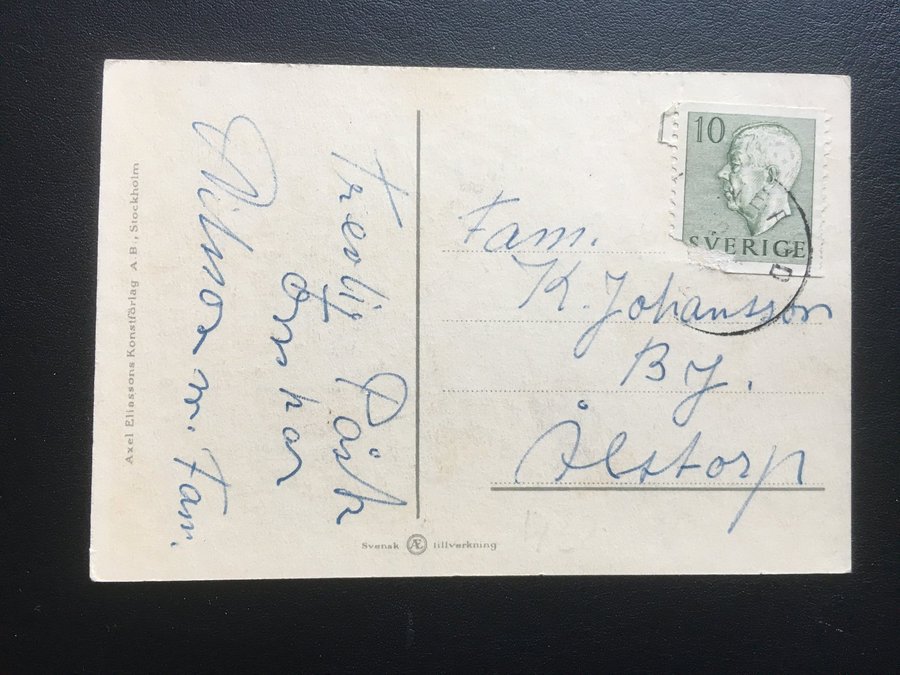 Trevlig Påsk
önskar
Nilsson m. Fam.
Axel Eliassons Konstförlag A.B., Stockholm
10
SVERIGE
Fam.
K. Johansson
By.
Ålstorp
Svensk Æ tillverkning